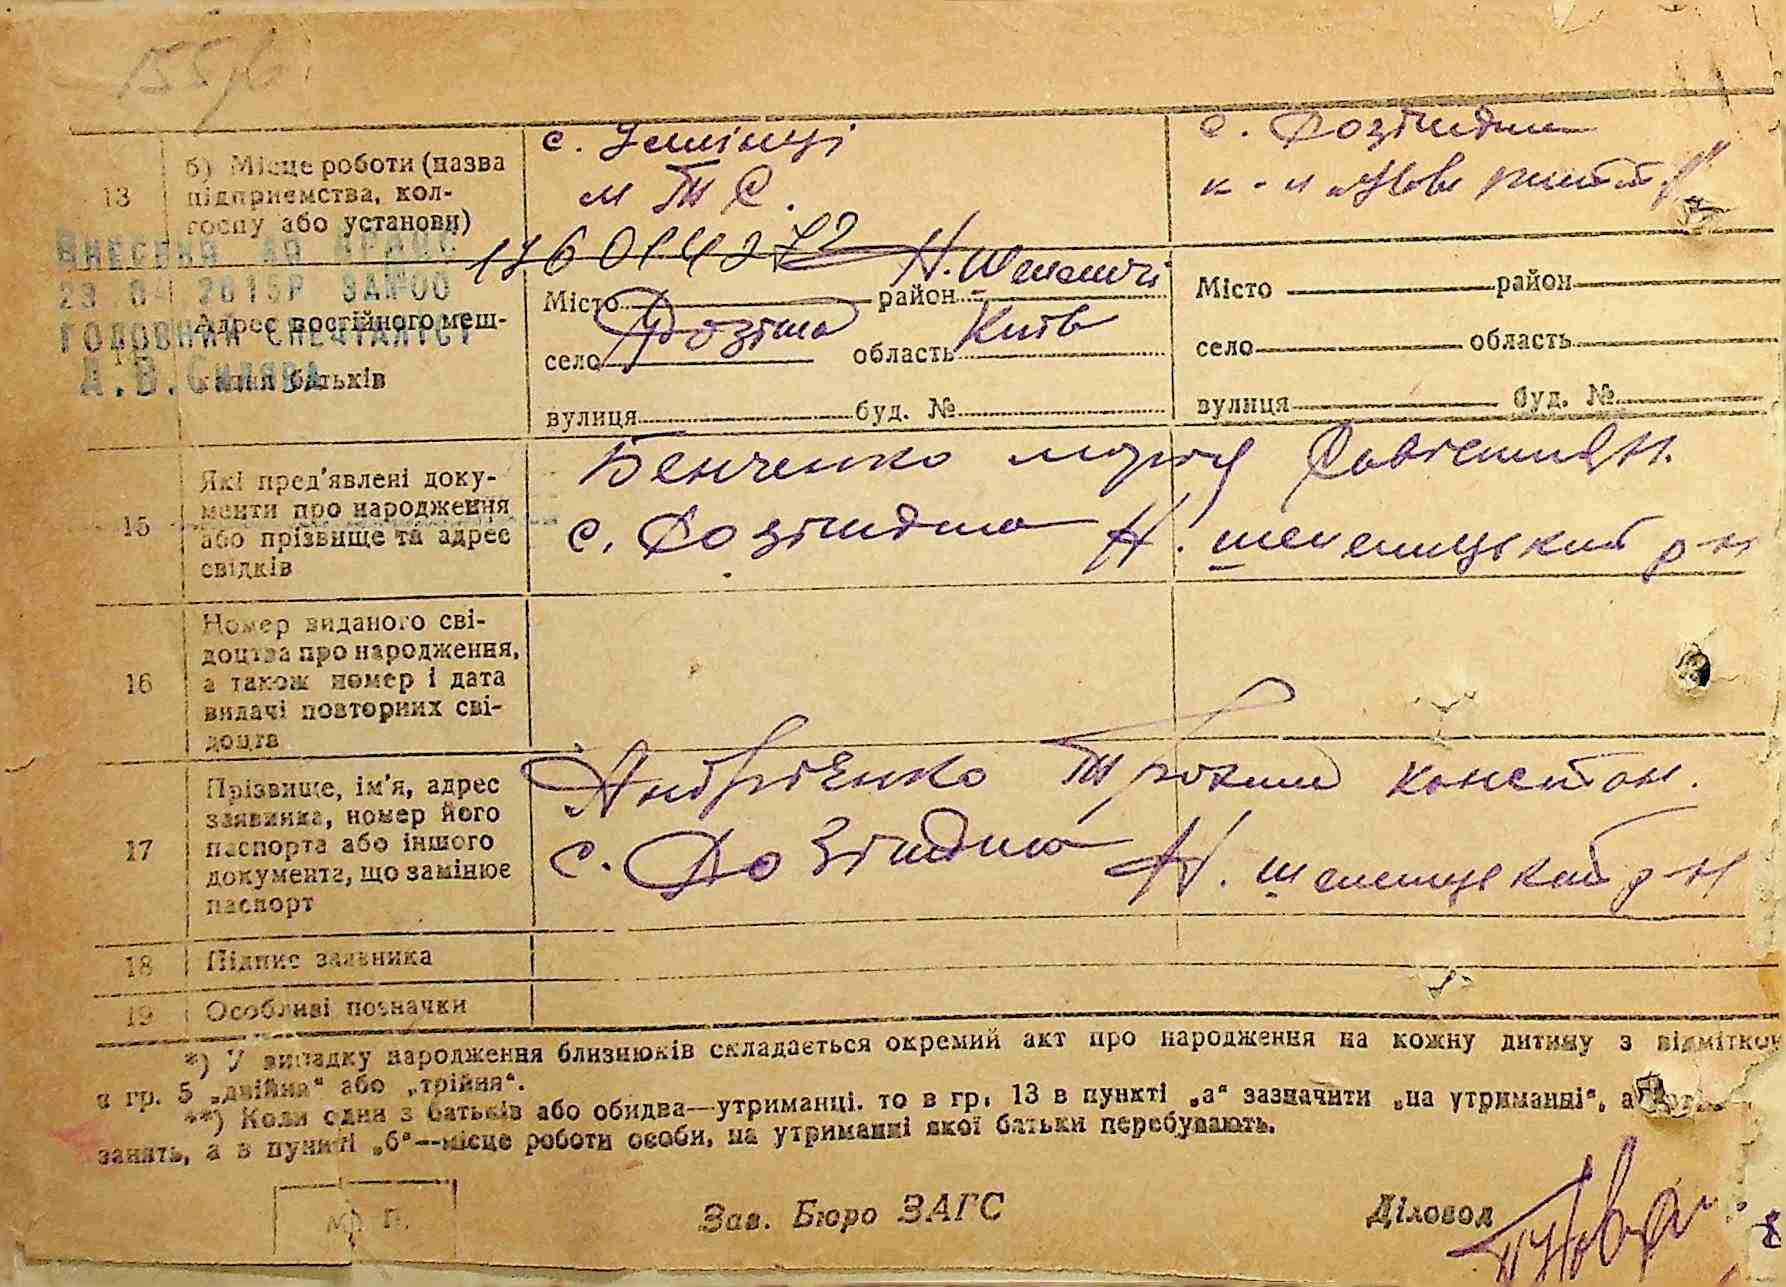 13
б) Місце роботи (назва
підприємства, кол-
госпу або установи)
с.
М Т С.
с.
к-п Нове життя
Внесено до ДРАЦС
23.04.2015р
головний спеціаліст
А.В.
Адрес постійного меш-
кання батьків
Місто район Н. Шепеличі
село область Київ
вулиця буд. №
Місто район
село область
вулиця буд. №
15
Які пред'явлені доку-
менти про народження
або прізвище та адрес
свідків
Бенченко
с. Н. шепелицький р-н
16
Номер виданого сві-
доцтва про народження,
а також номер і дата
видачі повторних сві-
доцтв
17
Прізвище, ім'я, адрес
заявника, номер його
паспорта або іншого
документа, що замінює
паспорт
Андрієнко Трохим Констан.
с. Н. шепелицький р-н
18
Підпис заявника
19
Особливі позначки
*) У випадку народження близнюків складається окремий акт про народження на кожну дитину з відміткою
в гр. 5 „двійня“ або „трійня“.
**) Коли один з батьків або обидва—утриманці, то в гр. 13 в пункті „а“ зазначити „на утриманні“, а
занять, а в пункті „б“—місце роботи особи, на утриманні якої батьки перебувають.
М. П.
Зав. Бюро ЗАГС
Діловод